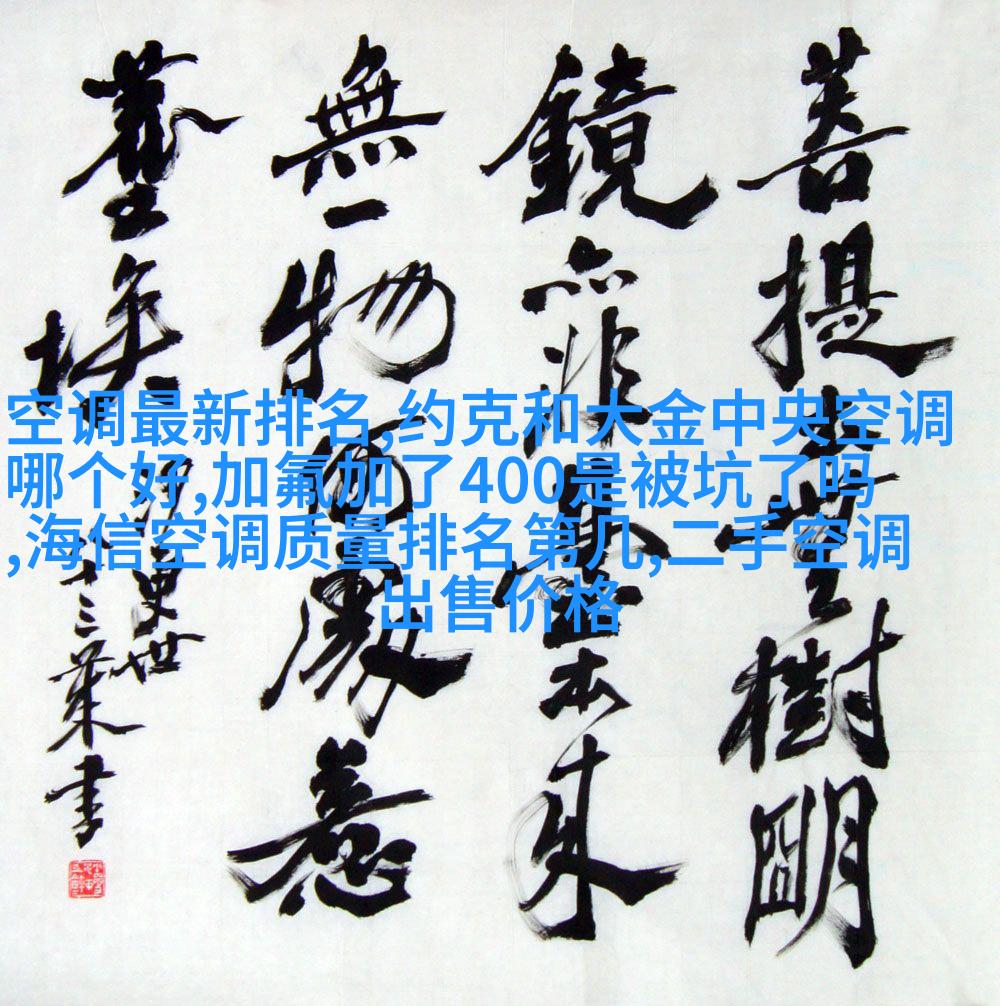 空调最新排名,约克和大金中央空调
哪个好,加氟加了400是被坑了吗
,海信空调质量排名第几,二手空调
出售价格
菩提本無樹明
鏡亦非臺本来
無一物何處惹
塵埃
史世
十三葉書